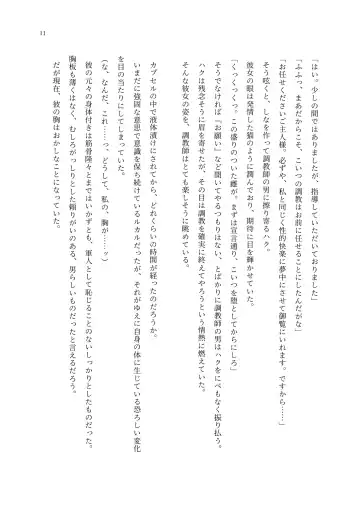 「はい。少しの間ではありましたが、指導していただいておりました」
「ふふっ、まあだからこそ、こいつの調教はお前に任せることにしたんだがな」
「お任せくださいご主人様。必ずや、私と同じく性的快楽に夢中にさせて御覧にいれます。ですから……」
そう呟くと、しなを作って調教師の男に擦り寄るハク。
彼女の眼は発情した猫のように潤んでおり、期待に目を輝かせていた。
「くっくっくっ、この盛りのついた雌が。まずは宣言通り、こいつを堕としてからにしろ」
そうでなければ「お願い」など聞いてやるつもりはない、とばかりに調教師の男はハクをにべもなく振り払う。
ハクは残念そうに眉を寄せたが、その目は調教を確実に終えてやろうという情熱に燃えていた。
そんな彼女の姿を、調教師はとても楽しそうに眺めている。
カプセルの中で液体漬けにされてから、どれくらいの時間が経ったのだろうか。
いまだに強固な意思で意識を保ち続けているルカルだったが、それがゆえに自身の体に生じている恐ろしい変化
を目の当たりにしてしまっていた。
(な、なんだ、これ……っ、どうして、私の、胸が……ッ)
彼の元々の身体付きは筋骨隆々とまではいかずとも、軍人として恥じることのないしっかりとしたものだった。
胸板も薄くはなく、むしろがっしりとした頼りがいのある、男らしいものだったと言えるだろう。
だが現在、彼の胸はおかしなことになっていた。
11